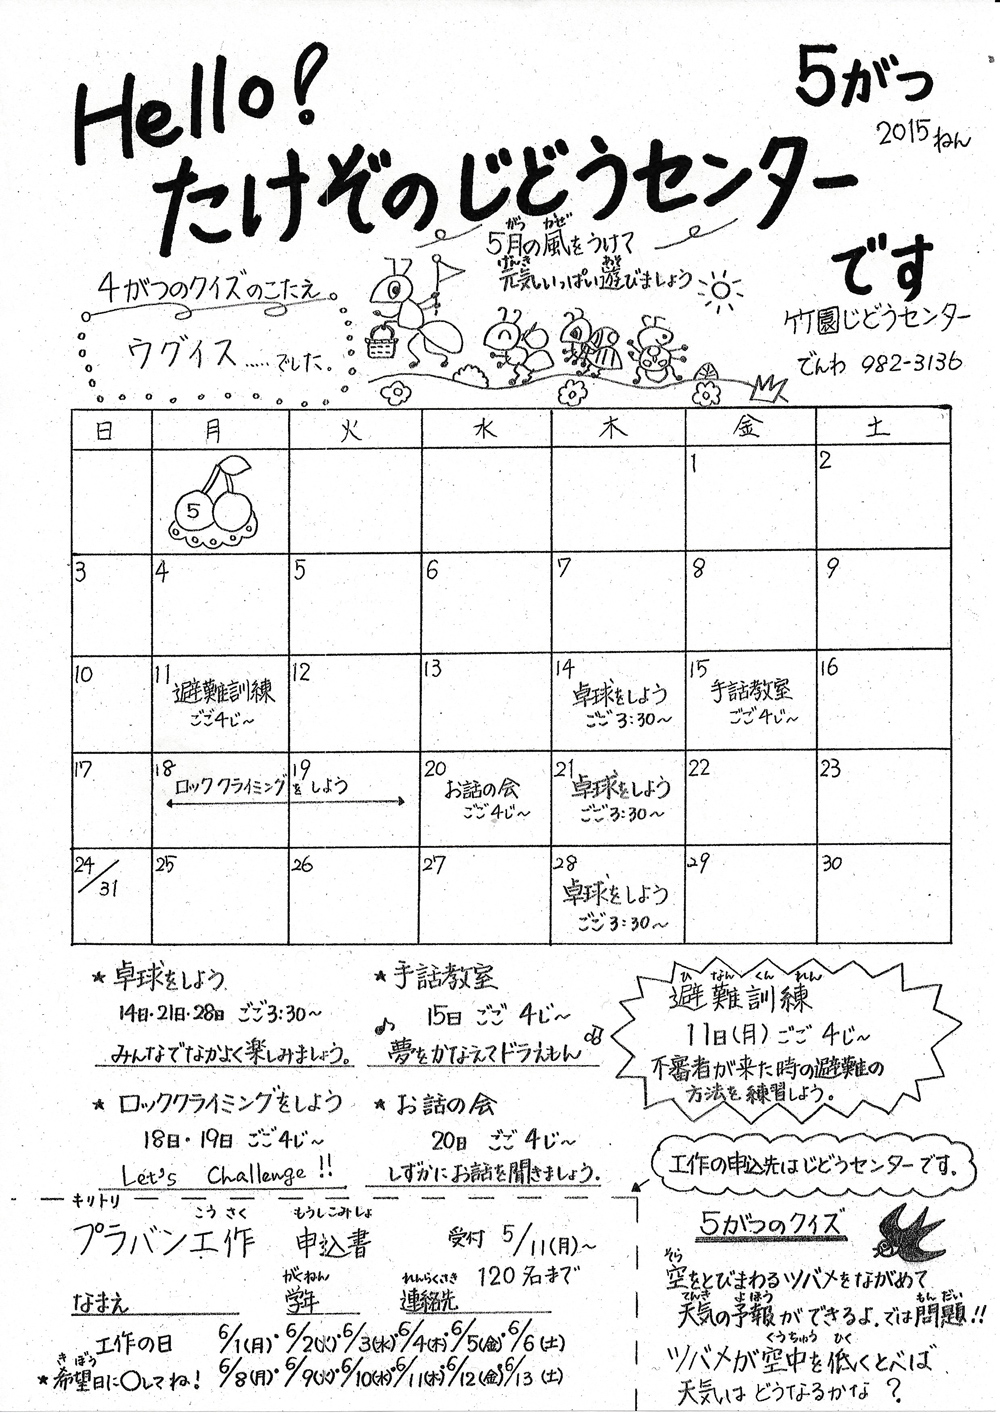 Hello!
5がつ
2015ねん
たけぞのじどうセンター
です
5月の風をうけて
がつ かぜ
元気いっぱい遊びましょう
げんき あそ
4がつのクイズのこたえ。
ウグイス.....でした。
竹園じどうセンター
でんわ 982-3136
日 月 火 水 木 金 土
5 1 2
3 4 5 6 7 8 9
10 11 12 13 14 15 16
避難訓練 卓球をしよう 手話教室
ごご4じ～ ごご3:30～ ごご4じ～
17 18 19 20 21 22 23
ロッククライミングをしよう お話の会 卓球をしよう
ごご4じ～ ごご3:30～
24/31 25 26 27 28 29 30
卓球をしよう
ごご3:30～
★卓球をしよう
14日・21日・28日 ごご3:30～
みんなでなかよく楽しみましょう。
★手話教室
15日 ごご 4じ～
♪夢をかなえてドラえもん
ひ なん くん れん
避難訓練
11日(月)ごご 4じ～
不審者が来た時の避難の
方法を練習しよう。
★ロッククライミングをしよう
18日・19日 ごご4じ～
Let's Challenge!!
★お話の会
20日 ごご 4じ～
しずかにお話を聞きましょう。
工作の申込先はじどうセンターです。
キリトリ
こう さく もうしこみしょ
プラバン工作 申込書 受付 5/11(月)～
120名まで
がくねん れんらくさき
なまえ 学年 連絡先
工作の日 6/1(月)・6/2(火)・6/3(水)・6/4(木)・6/5(金)・6/6(土)
き ぼう
★希望日に○してね! 6/8(月)・6/9(火)・6/10(水)・6/11(木)・6/12(金)・6/13(土)
5がつのクイズ
そら
空をとびまわるツバメをながめて
てんき よ ほう もん だい
天気の予報ができるよ。では問題!!
くうちゅう ひく
ツバメが空中を低くとべば
天気は どうなるかな ?